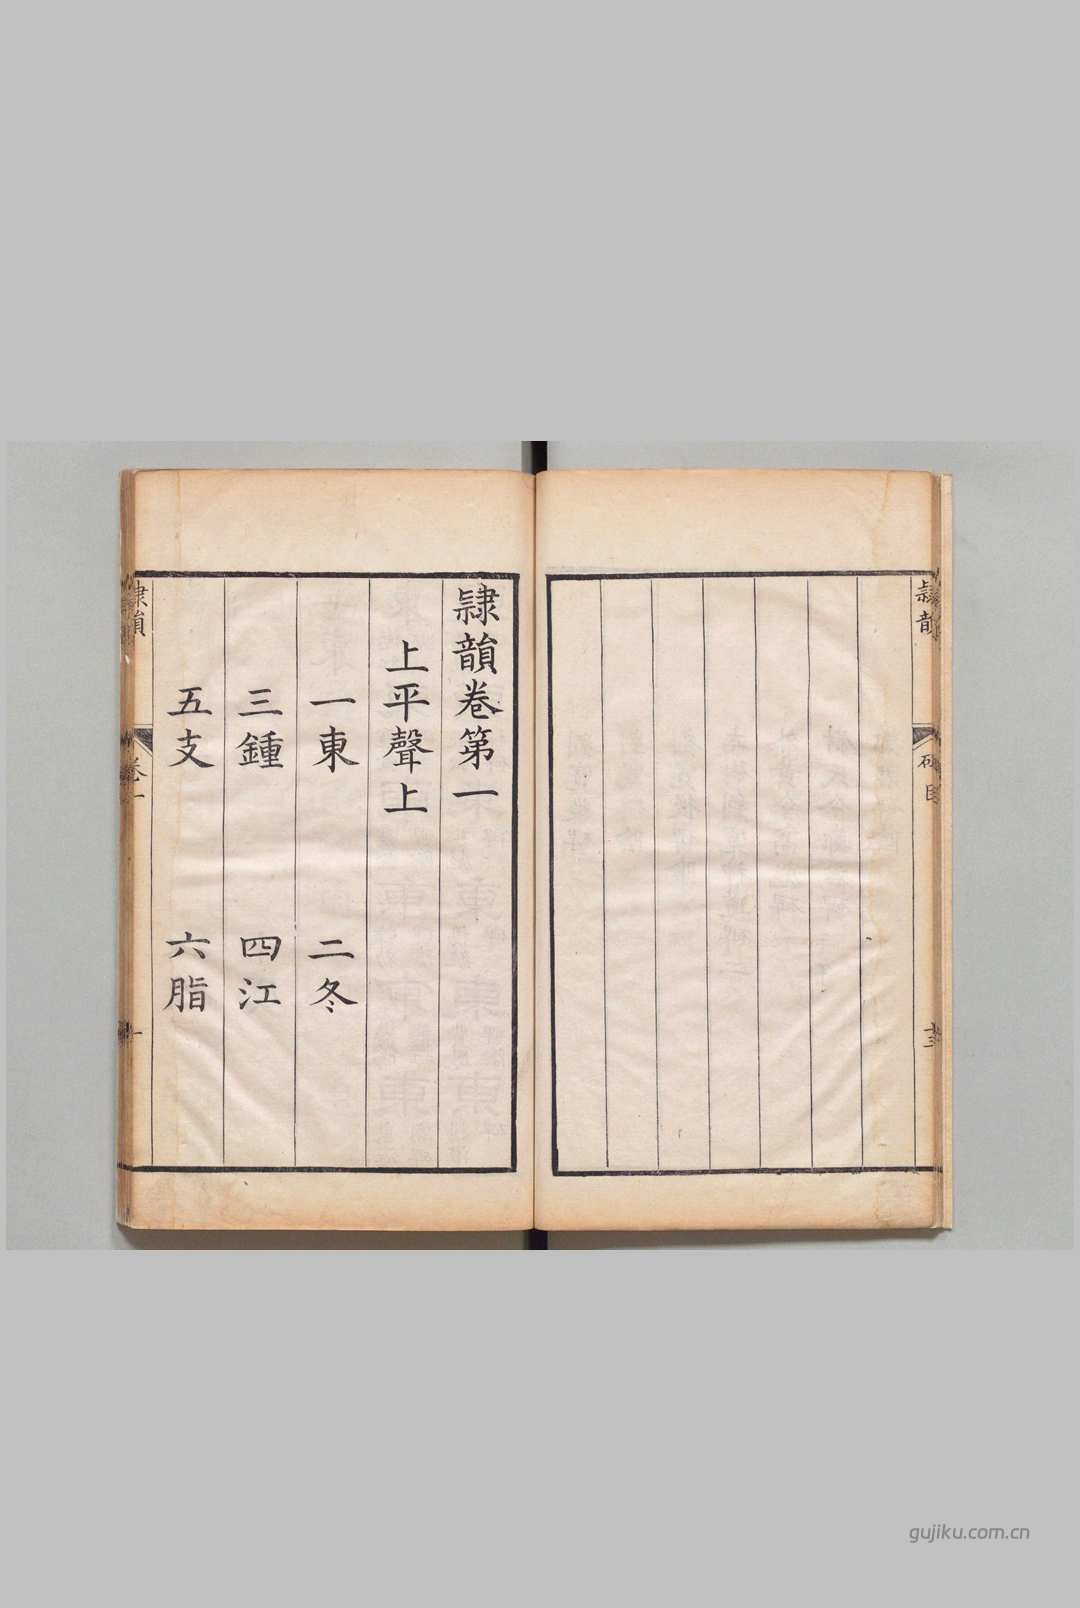 隸韻
碑目
十三
隸韻卷第一
上平聲上
一東
二冬
三鍾
四江
五支
六脂
隸韻
卷一
一
gujiku.com.cn